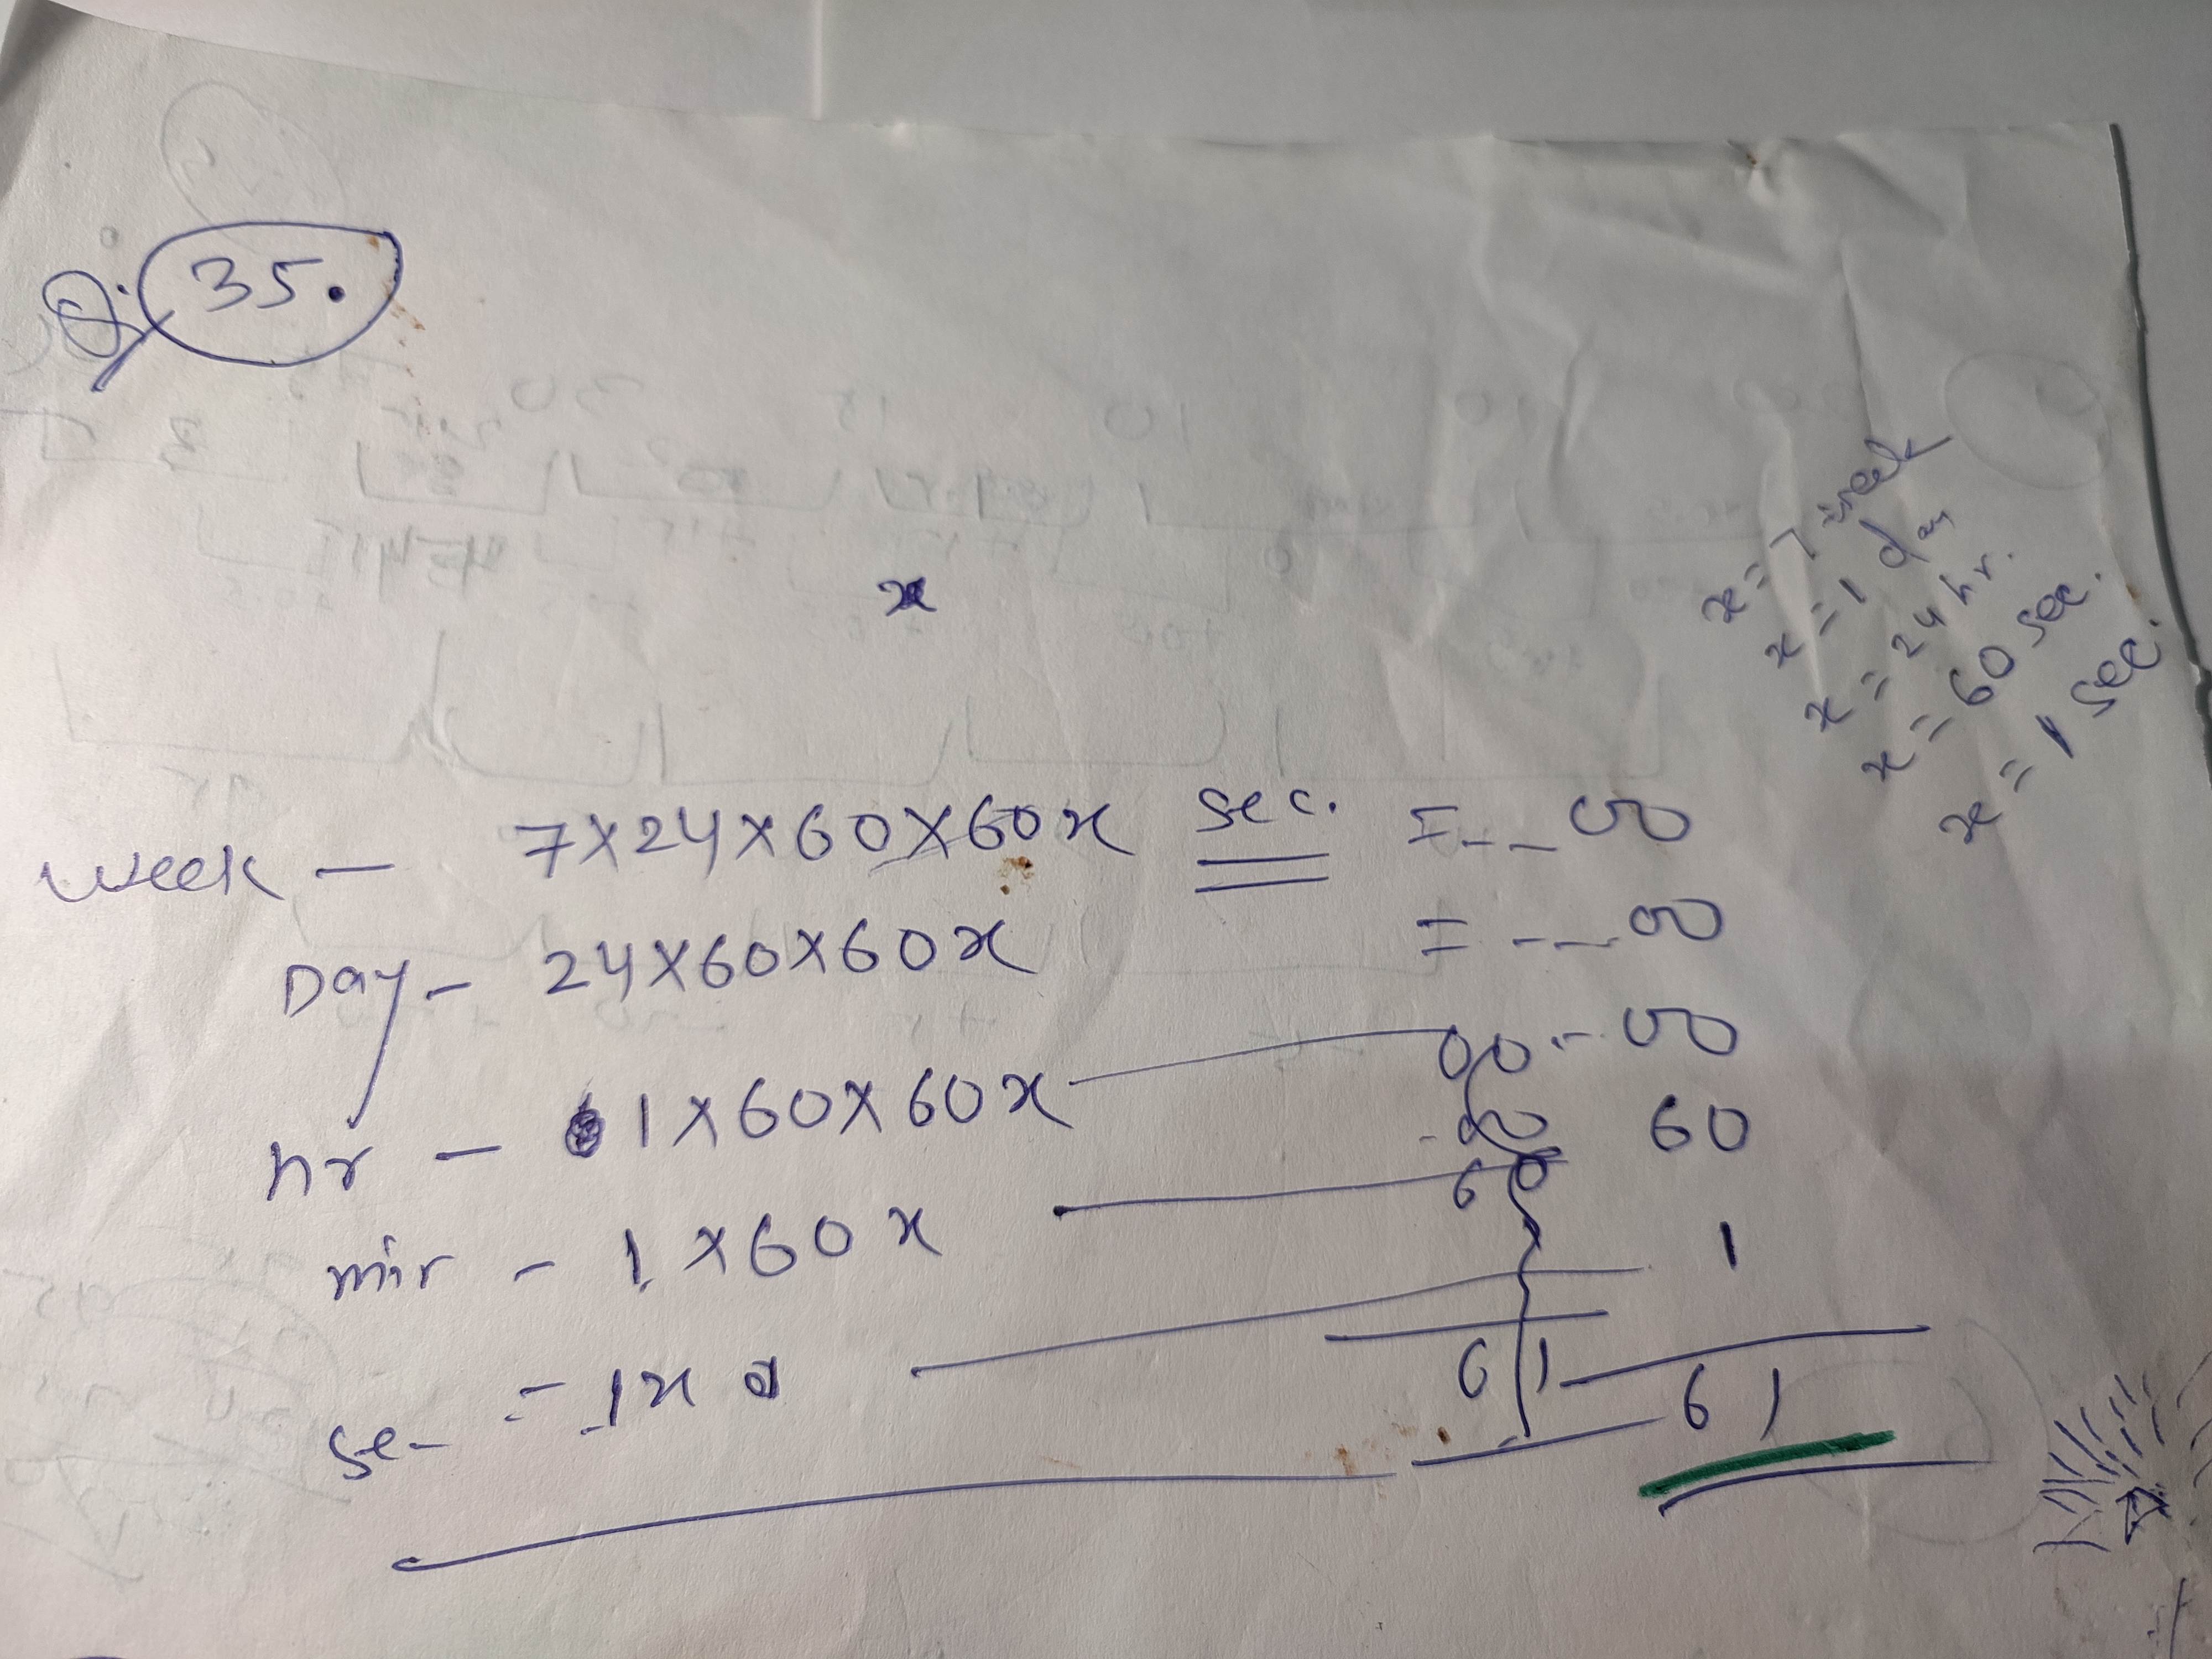 Q. 35.
x = 7 week
x = 1 day
x = 24 hr.
x = 60 sec.
x = 1 sec.
x
week - 7x24x60x60x sec. = - - 00
Day - 24x60x60x = - - 00
hr - 1x60x60x 00 - 00
min - 1x60x 60 60
se - = 1x 1
61 61